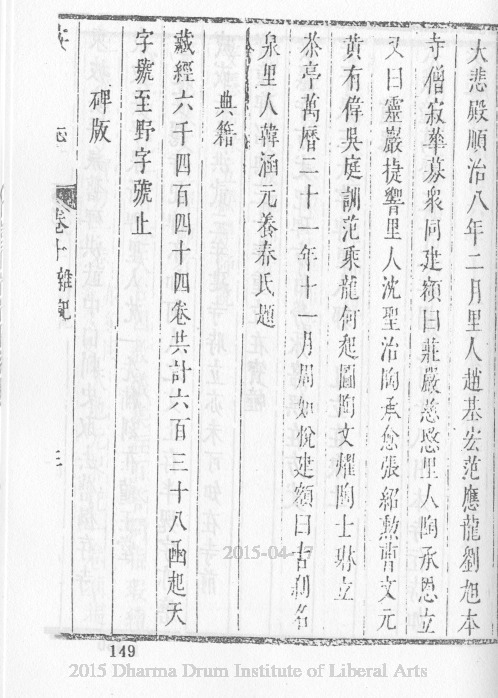 大悲殿順治八年二月里人趙基宏范應龍劉旭本
寺僧寂華募衆同建額曰莊嚴慈愍里人陶承恩立
又曰靈巖捷響里人沈聖治陶承愈張紹勲曹文元
黄有偉吳庭訓范乘龍何起圖陶文燿陶士琳立
茶亭萬曆二十一年十一月周如悅建額曰古刹名
泉里人韓涵元養春氏題
典籍
藏經六千四百四十四卷共計六百三十八函起天
字號至野字號止
碑版
志
卷十雜記
三
2015-04-17
149
2015 Dharma Drum Institute of Liberal Arts